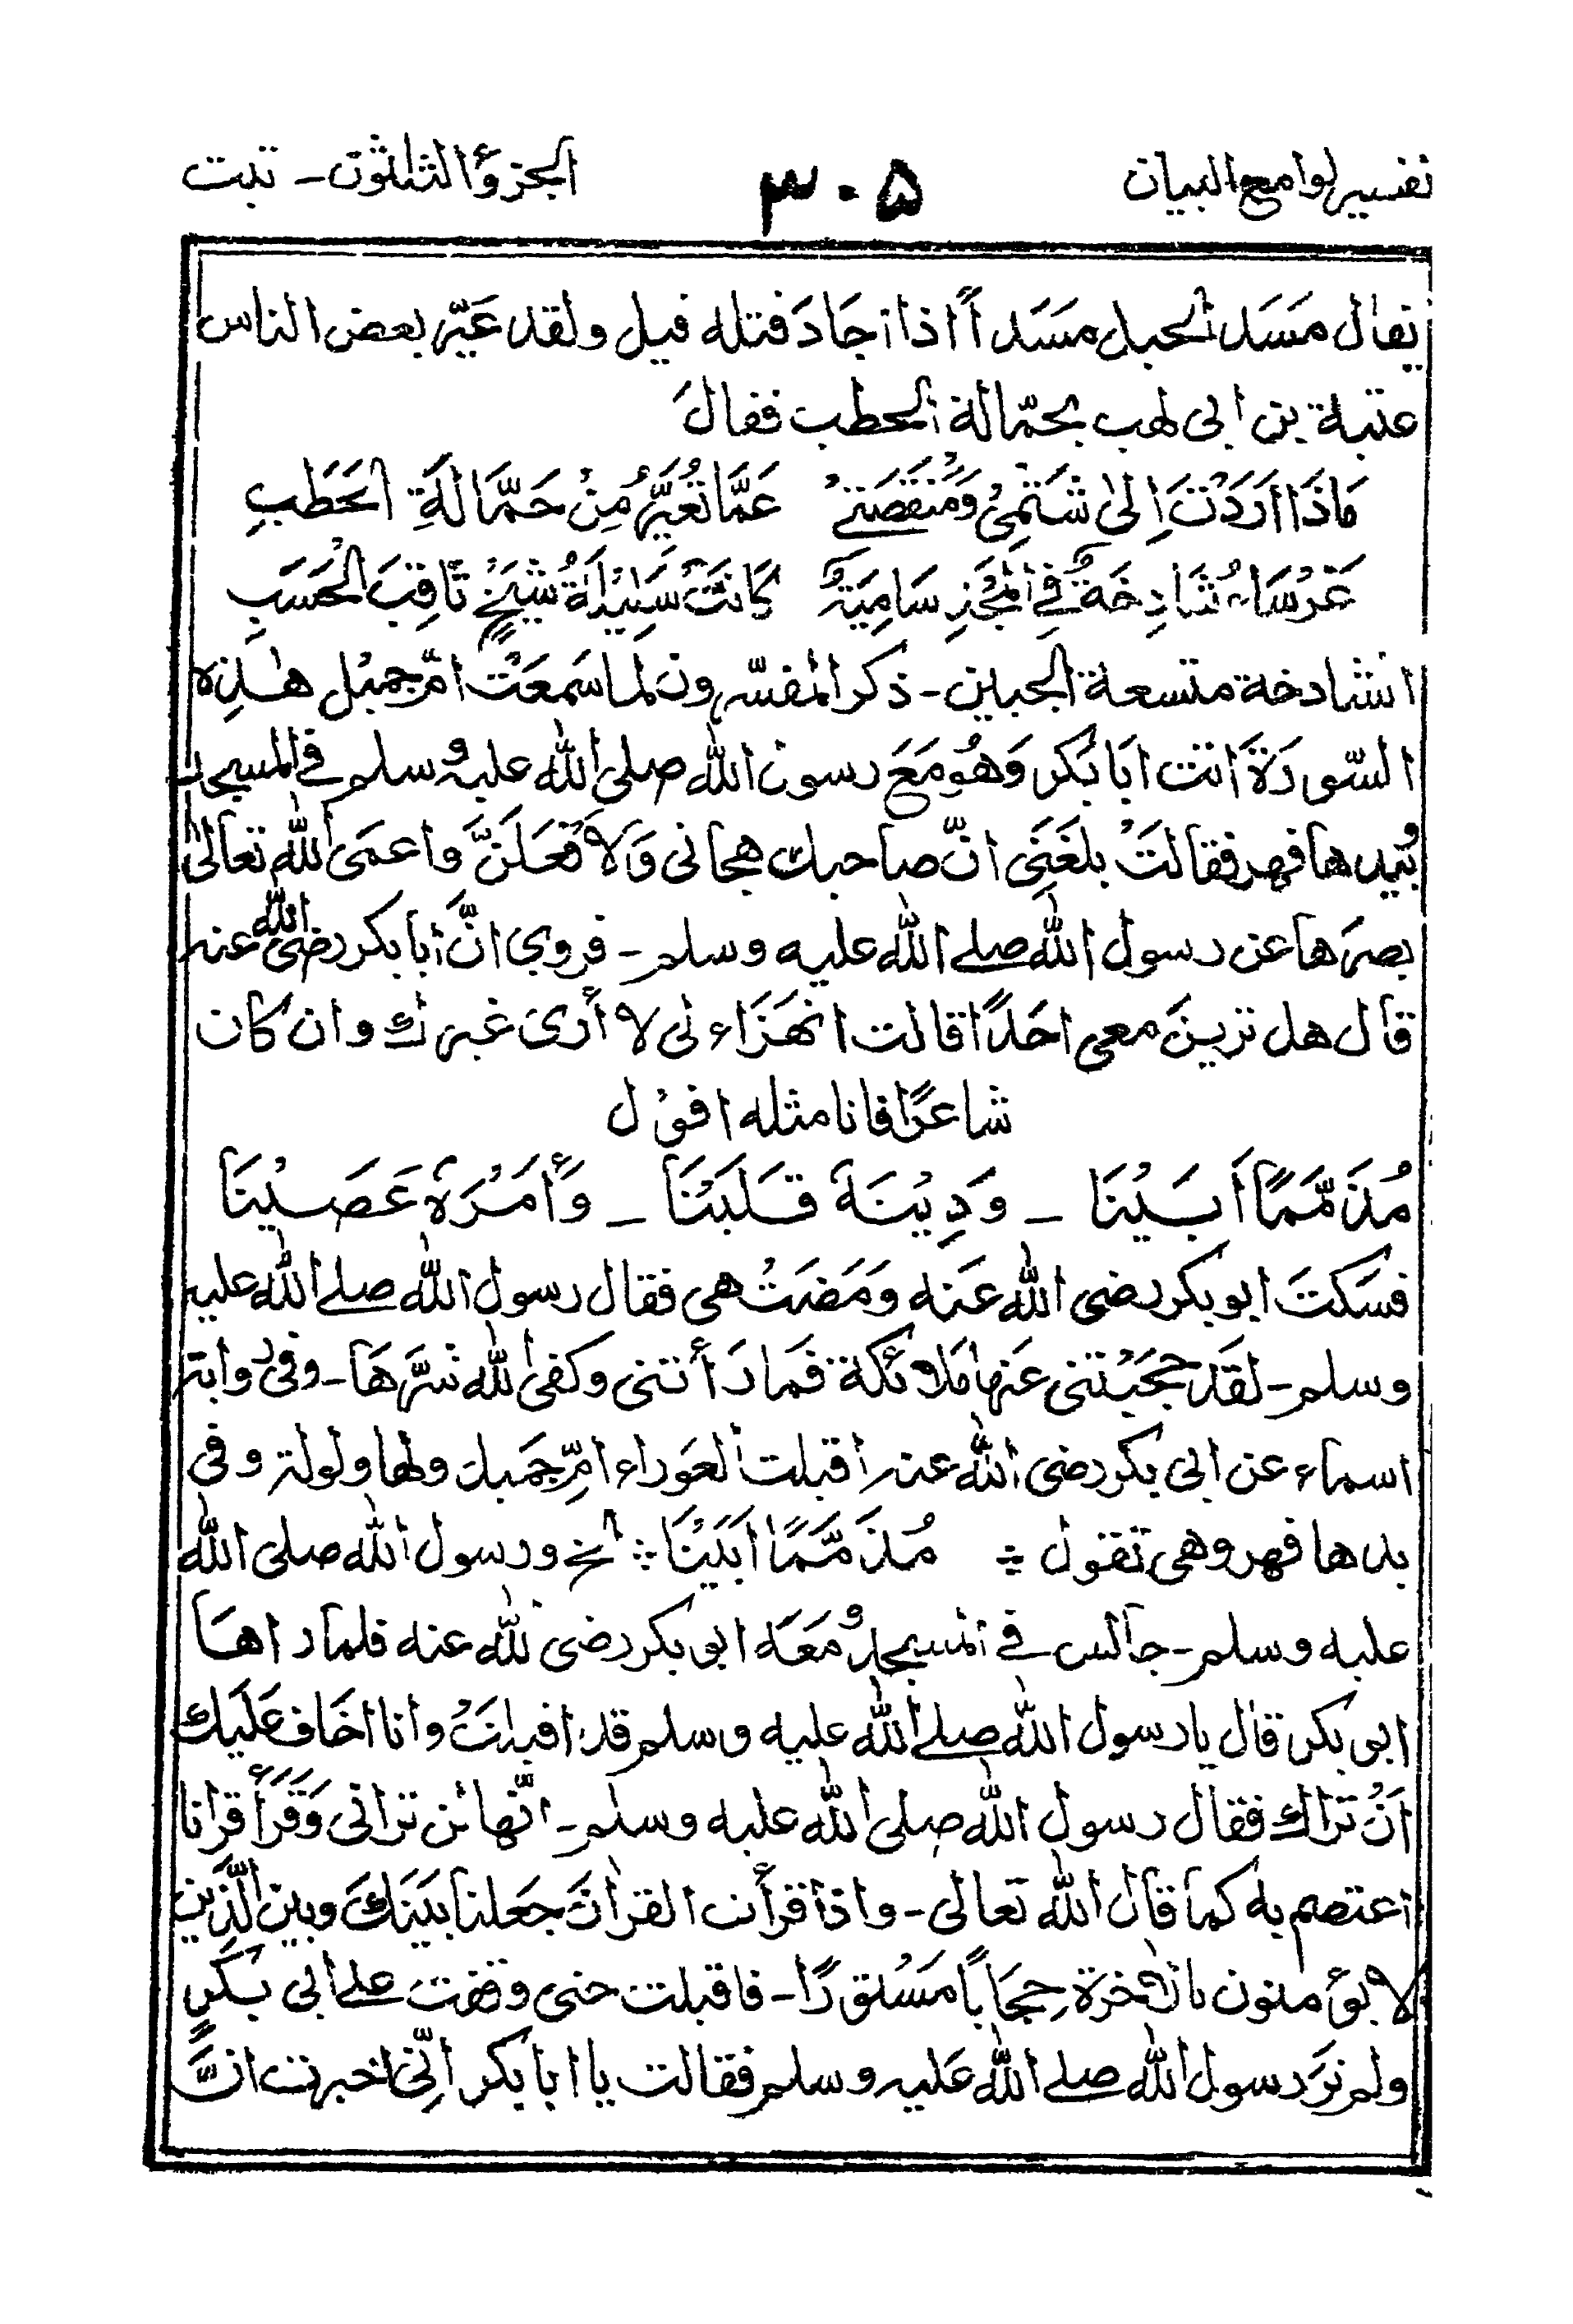 تفسير لوامع البيان ۳۰۵ الجزؤ الثلثون - تبت
يقال مَسَد الحبل مَسَداً اذا اجَادَ فتله قيل ولقد عَيّر بعض الناس
عتبة بن ابى لهب بحمّالة الحطب فقالَ
مَاذَا اَرَدْتَ اِلىٰ شَتَمِىْ وَمَنْقَصَتِىْ عَمَّا تُعَيَّرُ مِنْ حَمَّالَةِ الحَطَبِ
غَرْسَاءُ شَادِخَةٌ فِي الْمَجْزِ سَامِيَةٌ كَانَتْ سَلِيْلَةُ شَيْخٍ ثَاقِبِ الْحَسَبِ
الشادخة متسعة الجبين - ذكر المفسّرون لما سَمعَتْ امّ جميل هٰذِه
السّورَةَ اَتت اَبَا بَكر وَهُو مَعَ رسول الله صلى الله عليه وسلم فى المسجد
وبيدها فهر فقالتْ بلغَنِى انّ صاحبك هجانى وَلاَفْعَلَنَّ واعمَى الله تعالىٰ
بصرَها عن رسول الله صلے الله عليه وسلم - فروي انَّ أبا بكر رضى الله عنه
قال هل ترينَ معى احَدًا قالت اتهَزَاء بى لا أَرىٰ غيرك وان كان
شاعرًا فانا مثله اقوْل
مُذَمَّمًا اَبَيْنَا - وَدِيْنَهَ قَلَيْنَا - وَأَمْرَهٗ عَصَيْنَا
فسَكتَ ابو بكر رضى الله عَنه وَمَضَتْ هى فقال رسول الله صلے الله عليه
وسلم - لقَد حجَبْتنى عَنها مَلائكة فَمَا رَأتنى وكفى الله شرَّهَا - وفى رواية
اسماء عن ابى بكر رضى الله عنه اقبلت العَوراء امّ جَميل ولها ولولة وفى
يدها فهر وهى تقول ÷ مُذَمَّمًا اَبَيْنَا ÷ الخ ورسول الله صلى الله
عليه وسلم - جالس فى المسجد وَمعَه ابو بكر رضى الله عنه فلما راهَا
ابو بكر قال يا رسول الله صلے الله عليه وسلم قد اقبلتْ وانا اخَاف عَلَيك
اَنْ تراك فقال رسول الله صلى الله عليه وسلم - انّها لن ترانى وَقَرَأَ قرانا
اعتصم به كما قال الله تعالى - واذا قرأت القراٰن جَعلنا بَينَكَ وبين الَّذين
لا يؤمنون بالاٰخرة حِجَابًا مَسْتورًا - فاقبلت حتى وقفت علے ابى بكرٍ
ولم ترَ رسول الله صلے الله عَليه وسلم فقالت يا ابا بكر انّى اخبرت انَّ